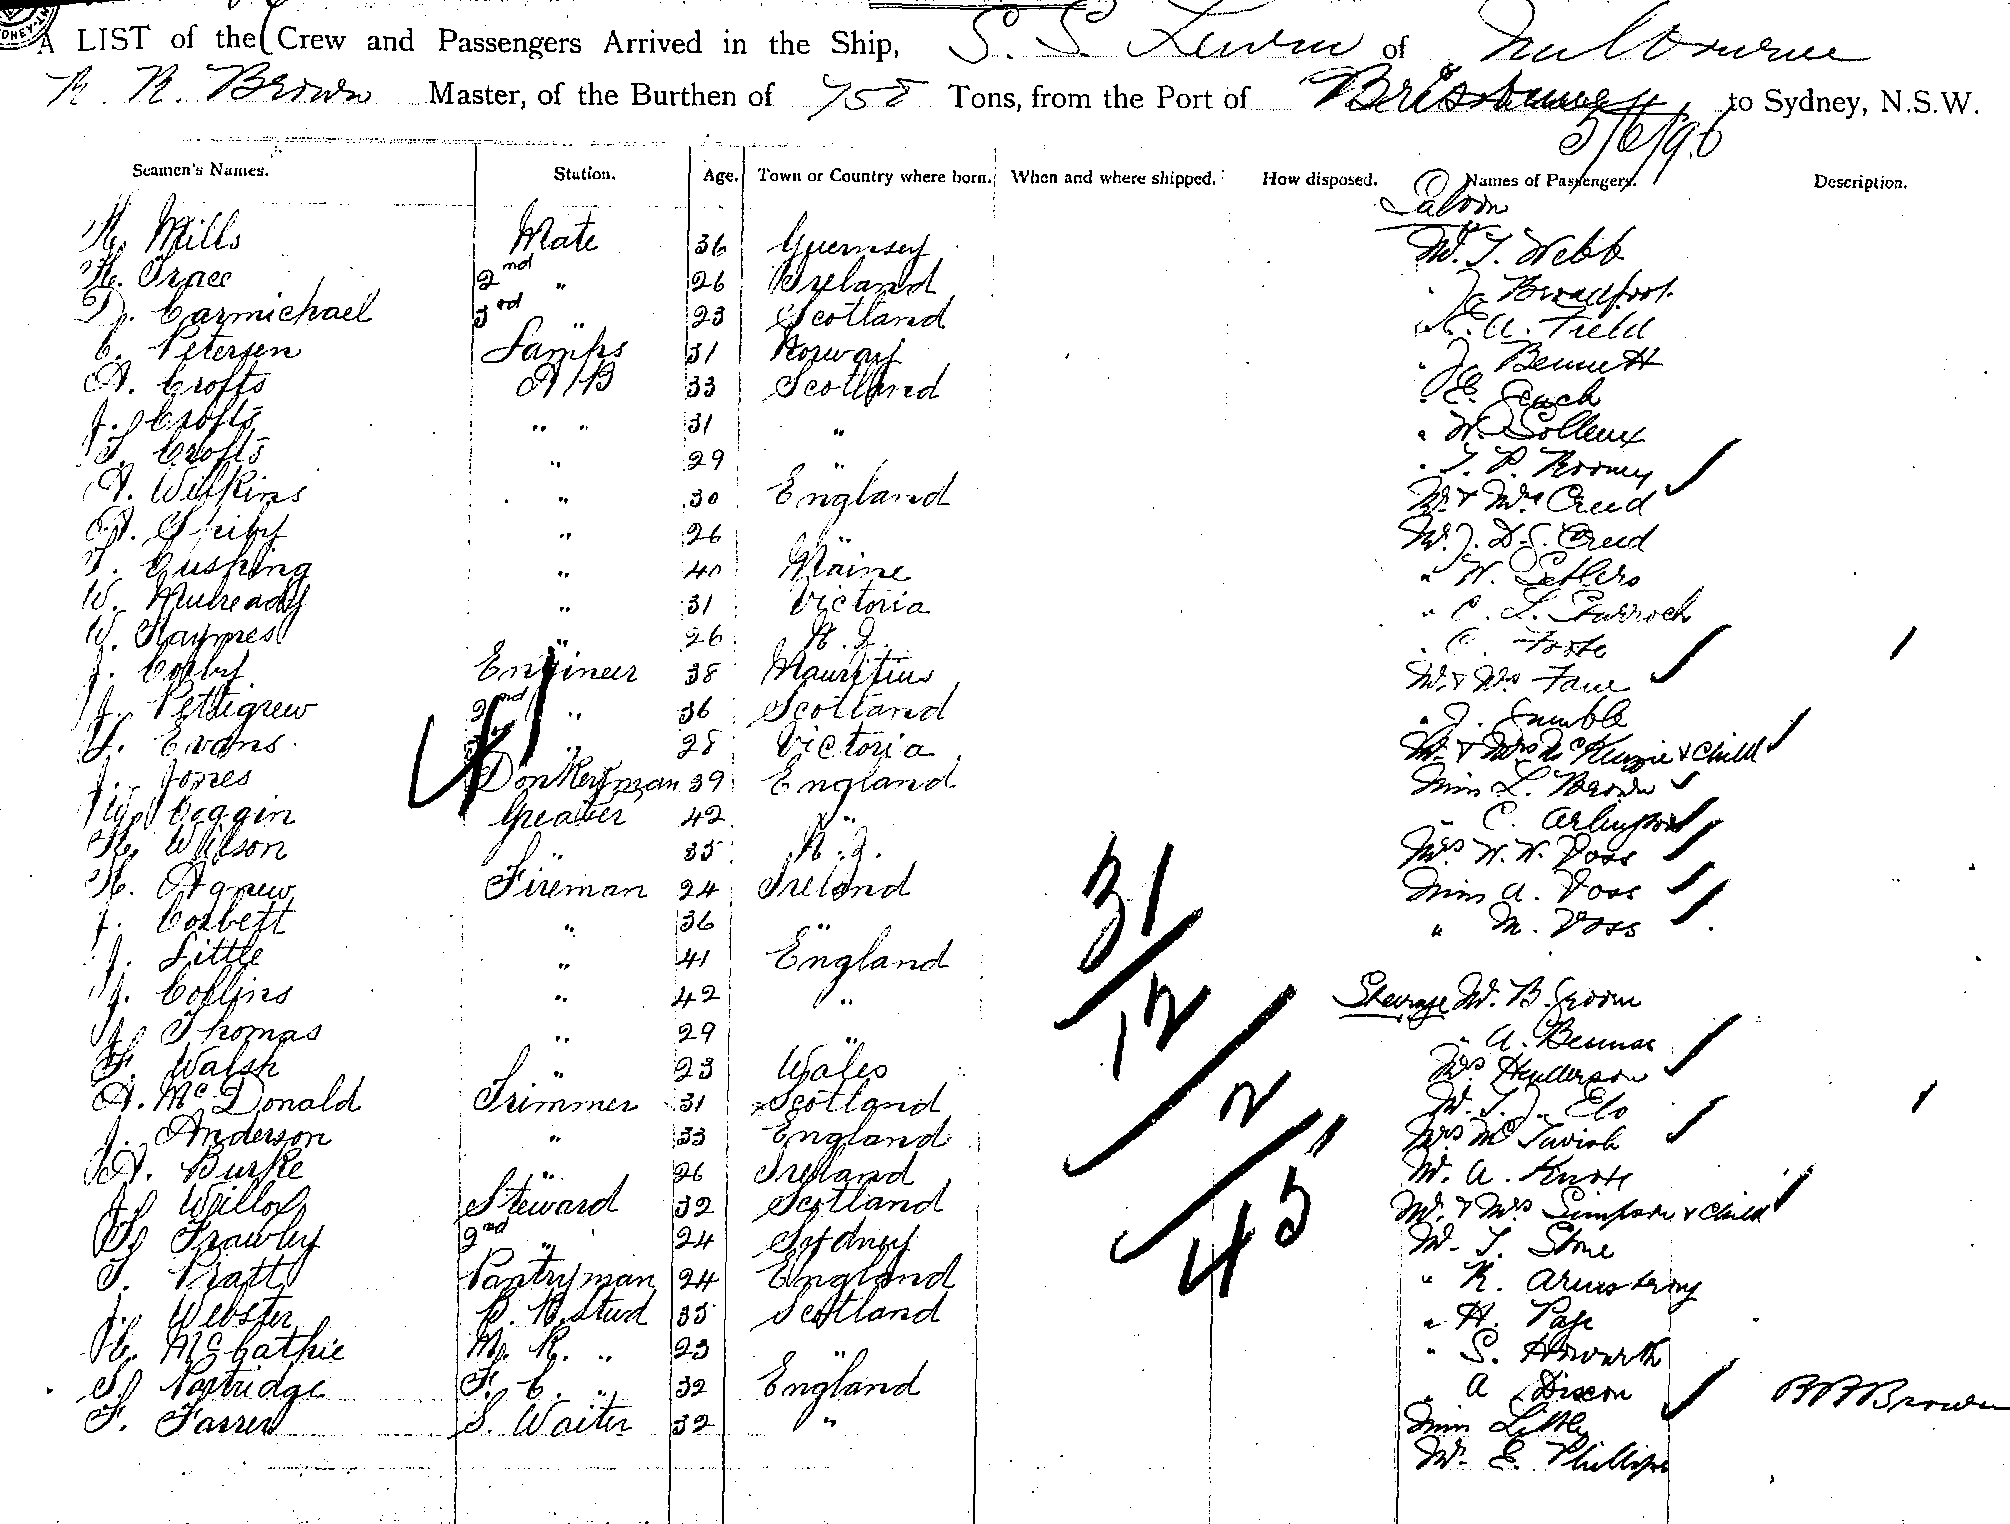 A LIST of the Crew and Passengers Arrived in the Ship, S. S. of Melbourne
R. R. Brown Master, of the Burthen of 758 Tons, from the Port of Brisbane to Sydney, N.S.W.
5/6/96
Seamen's Names. Station. Age. Town or Country where born. When and where shipped. How disposed. Names of Passengers. Description.
Saloon
Mills Mate 36 Guernsey Mr. T. Webb
H. Grace 2nd " 26 Ireland " J. Broadfoot
D. Carmichael 3rd " 23 Scotland " A. Field
C. Petersen Lamps 31 Norway " J. Bennett
A. Crofts A/B 33 Scotland " E.
J. Crofts " " 31 " " W.
T. Crofts " 29 " " T. P. Rooney
A. Wilkins " 30 England Mr. & Mrs Creed
A. Spiby " 26 " Mr. J. D. S. Creed
T. Cushing " 40 Maine " W. Sellers
W. Mulready " 31 Victoria " C. L. Sturrock
W. Haymes " 26 N. Z. " C. Foote
J. Corby Engineer 38 Mauritius Mr. & Mrs
J. Pettigrew 2nd " 36 Scotland " J. Gumble
Evans " 28 Victoria Mr. & Mrs McKenzie & Child
41
J. Jones Donkeyman 39 England Miss L. Brown
Coggin Greaser 42 " " C. Arlington
Wilson " 35 N. Z. Mrs W. W. Voss
H. Agnew Fireman 24 Ireland Miss A. Voss
J. Corbett " 36 " " M. Voss
31
J. Little " 41 England
J. Collins " 42 " Steerage Mr. B. Groom
12
J. Thomas " 29 " " A.
F. Walsh " 23 Wales Mrs Henderson
A. McDonald Trimmer 31 Scotland Mr. T. J.
2
J. Anderson " 33 England Mrs McTavish
A. Burke " 26 Ireland Mr. A. Knott
J. Steward 32 Scotland Mr. & Mrs Simpson & Child
45
Frawley 2nd " 24 Sydney Mr. T. Stone
T. Pratt Pantryman 24 England " R. Armstrong
J. Webster B. R. Stud 35 Scotland " H. Page
McCathie M. R. " 23 " " S. Howarth
Partridge F. C. " 32 England " A Dixon
R R Brown
F. Farrer S. Waiter 32 " Miss Little
Mr. E. Phillips